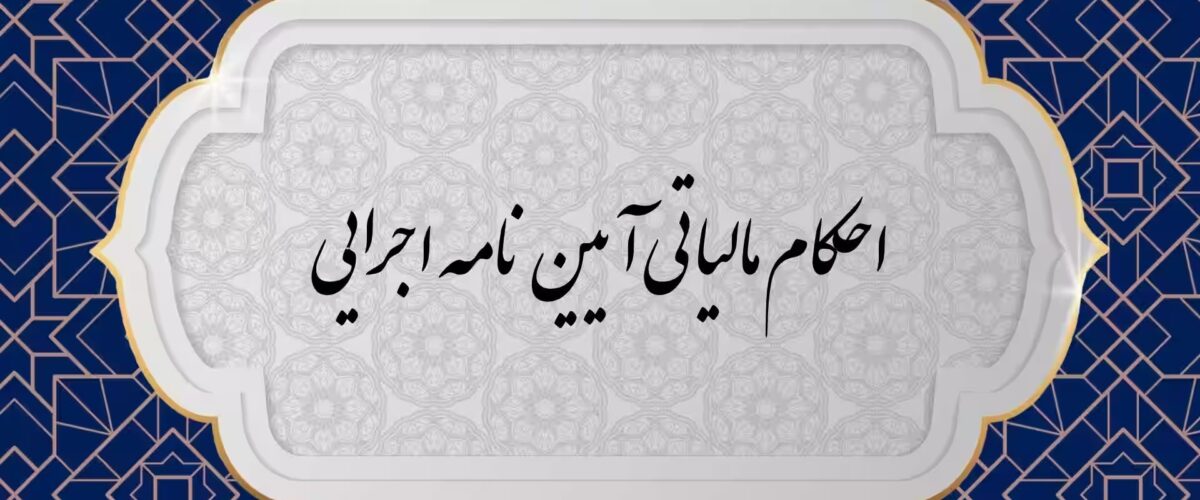 احکام مالیاتی آیین نامه اجرایی